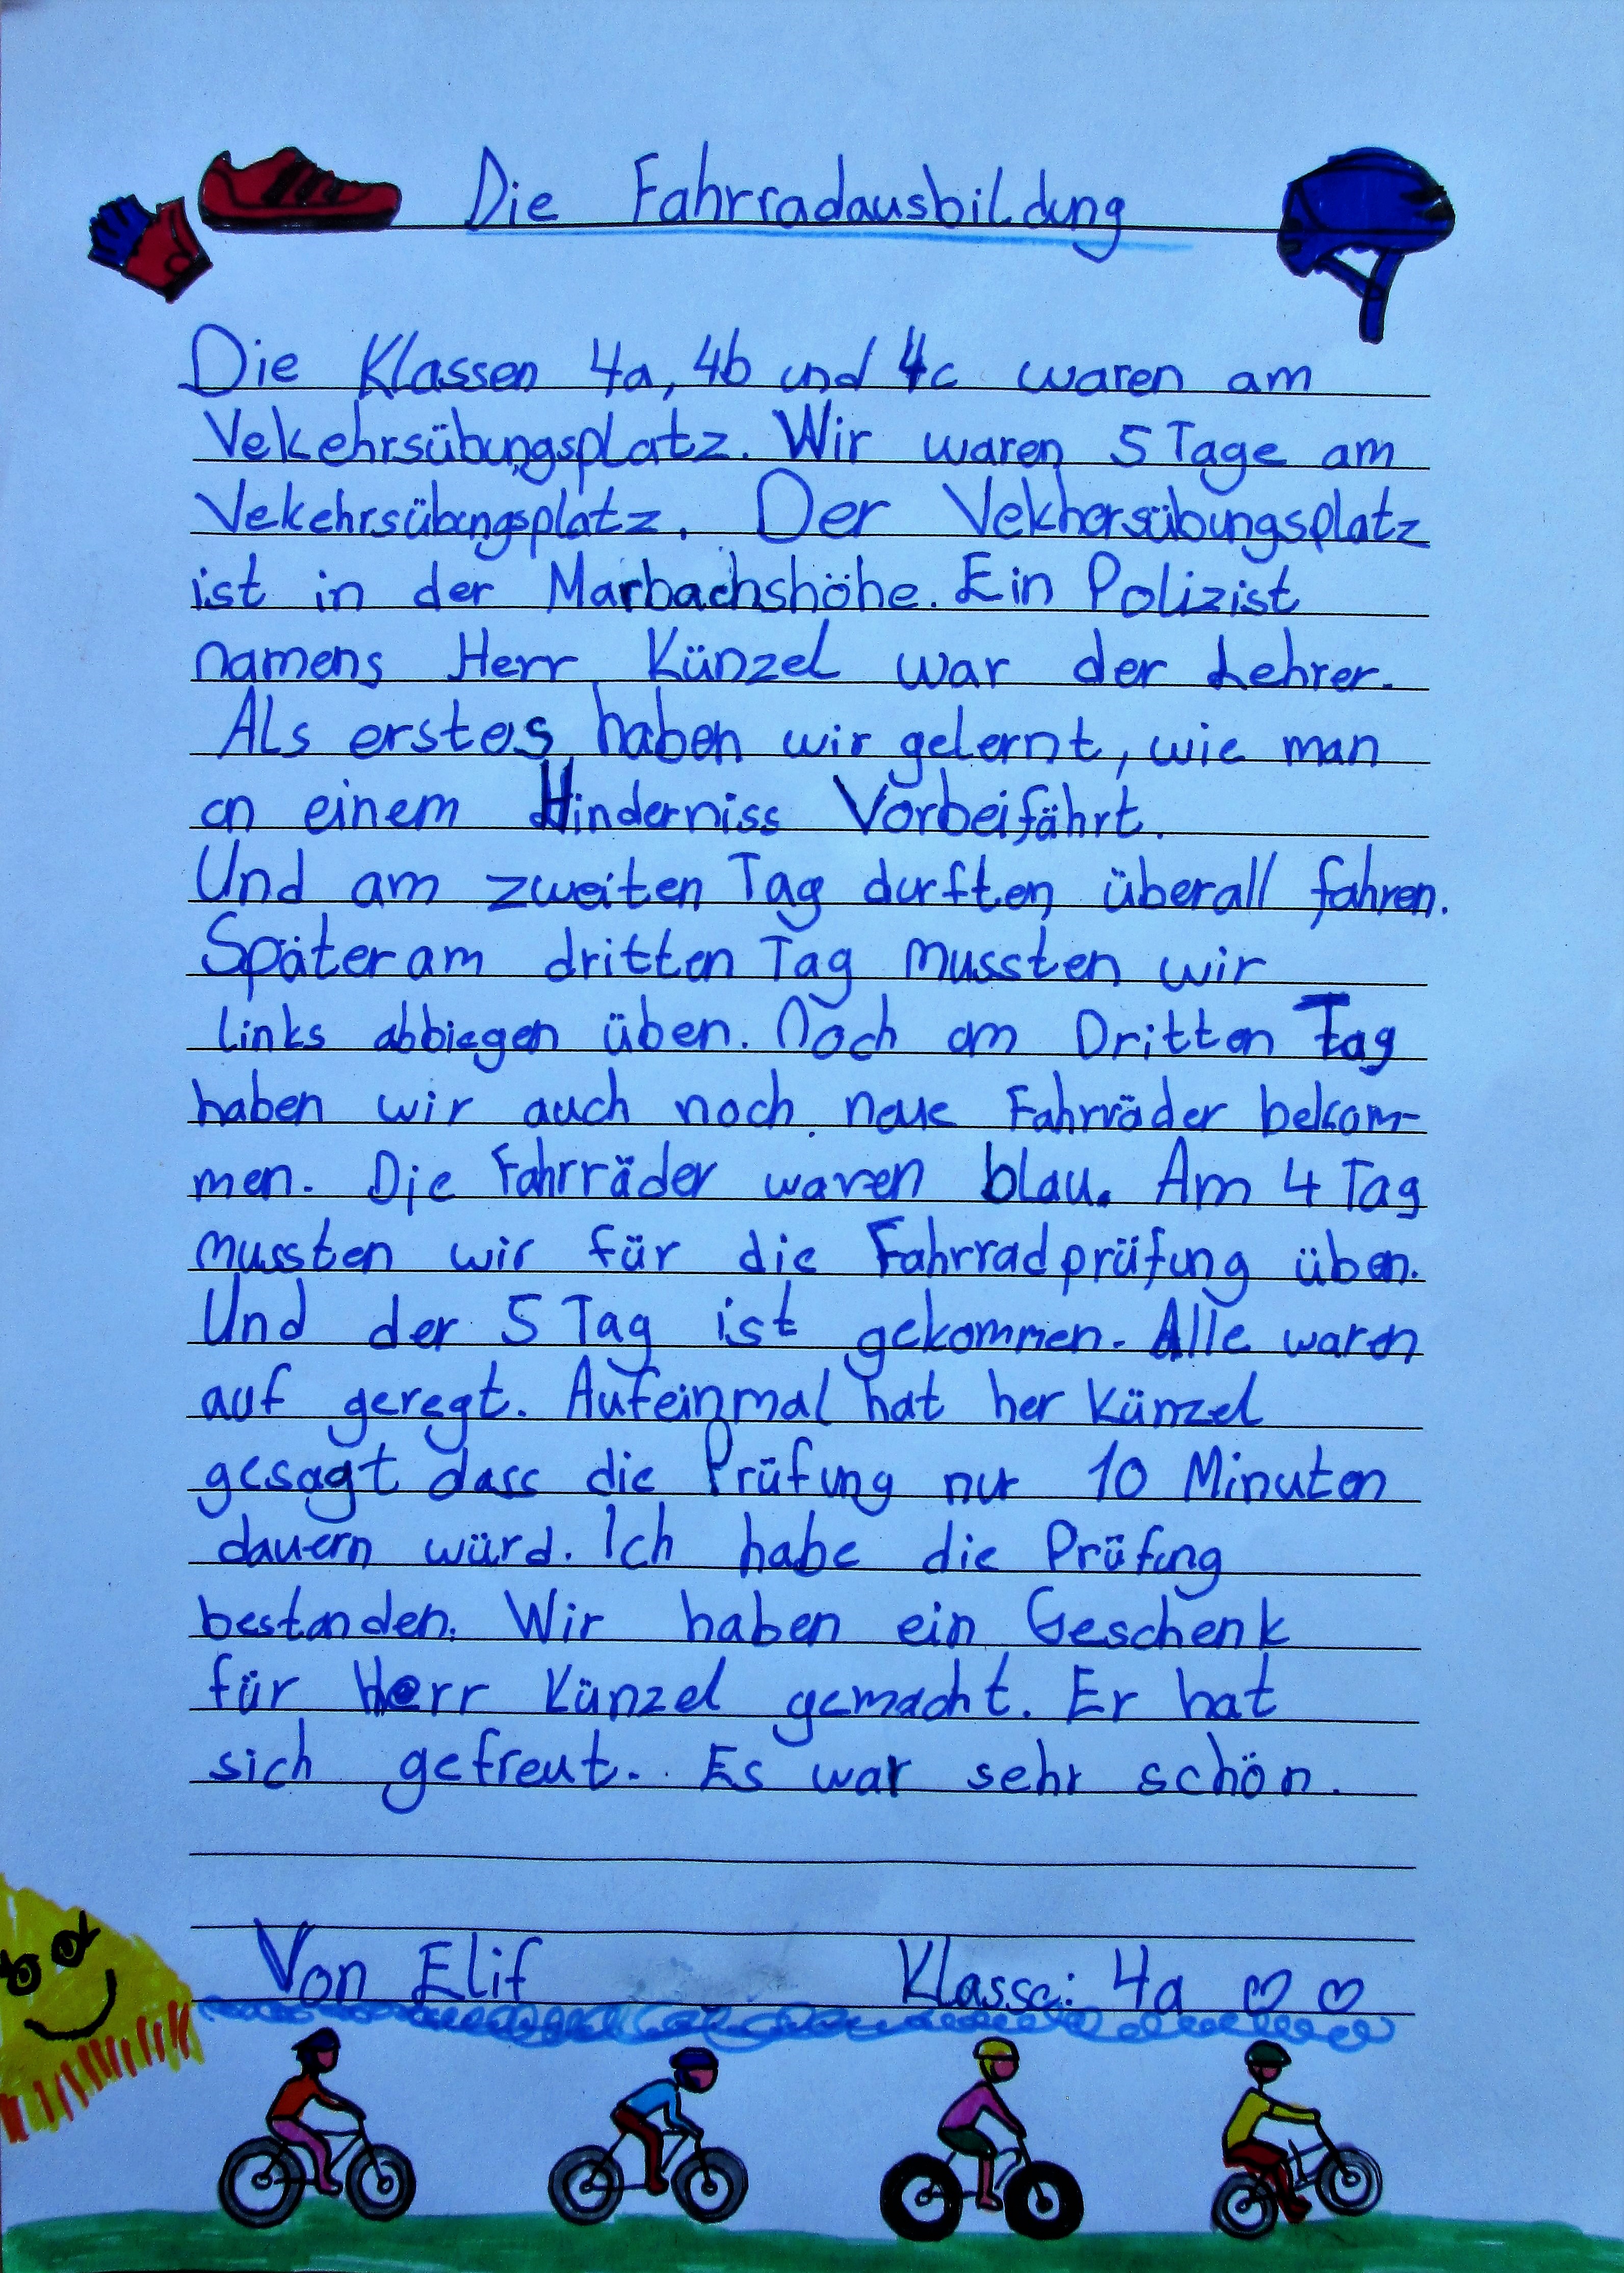 Die Fahrradausbildung
Die Klassen 4a, 4b und 4c waren am
Vekehrsübungsplatz. Wir waren 5 Tage am
Vekehrsübungsplatz. Der Vekhersübungsplatz
ist in der Marbachshöhe. Ein Polizist
namens Herr Künzel war der Lehrer.
Als erstes haben wir gelernt, wie man
an einem Hinderniss Vorbeifährt.
Und am zweiten Tag durften überall fahren.
Später am dritten Tag mussten wir
links abbiegen üben. Noch am Dritten Tag
haben wir auch noch neue Fahrräder bekom-
men. Die Fahrräder waren blau. Am 4 Tag
mussten wir für die Fahrradprüfung üben.
Und der 5 Tag ist gekommen. Alle waren
auf geregt. Aufeinmal hat her Künzel
gesagt dass die Prüfung nur 10 Minuten
dauern würd. Ich habe die Prüfung
bestanden. Wir haben ein Geschenk
für Herr Künzel gemacht. Er hat
sich gefreut. Es war sehr schön.
Von Elif Klasse: 4a ♡ ♡